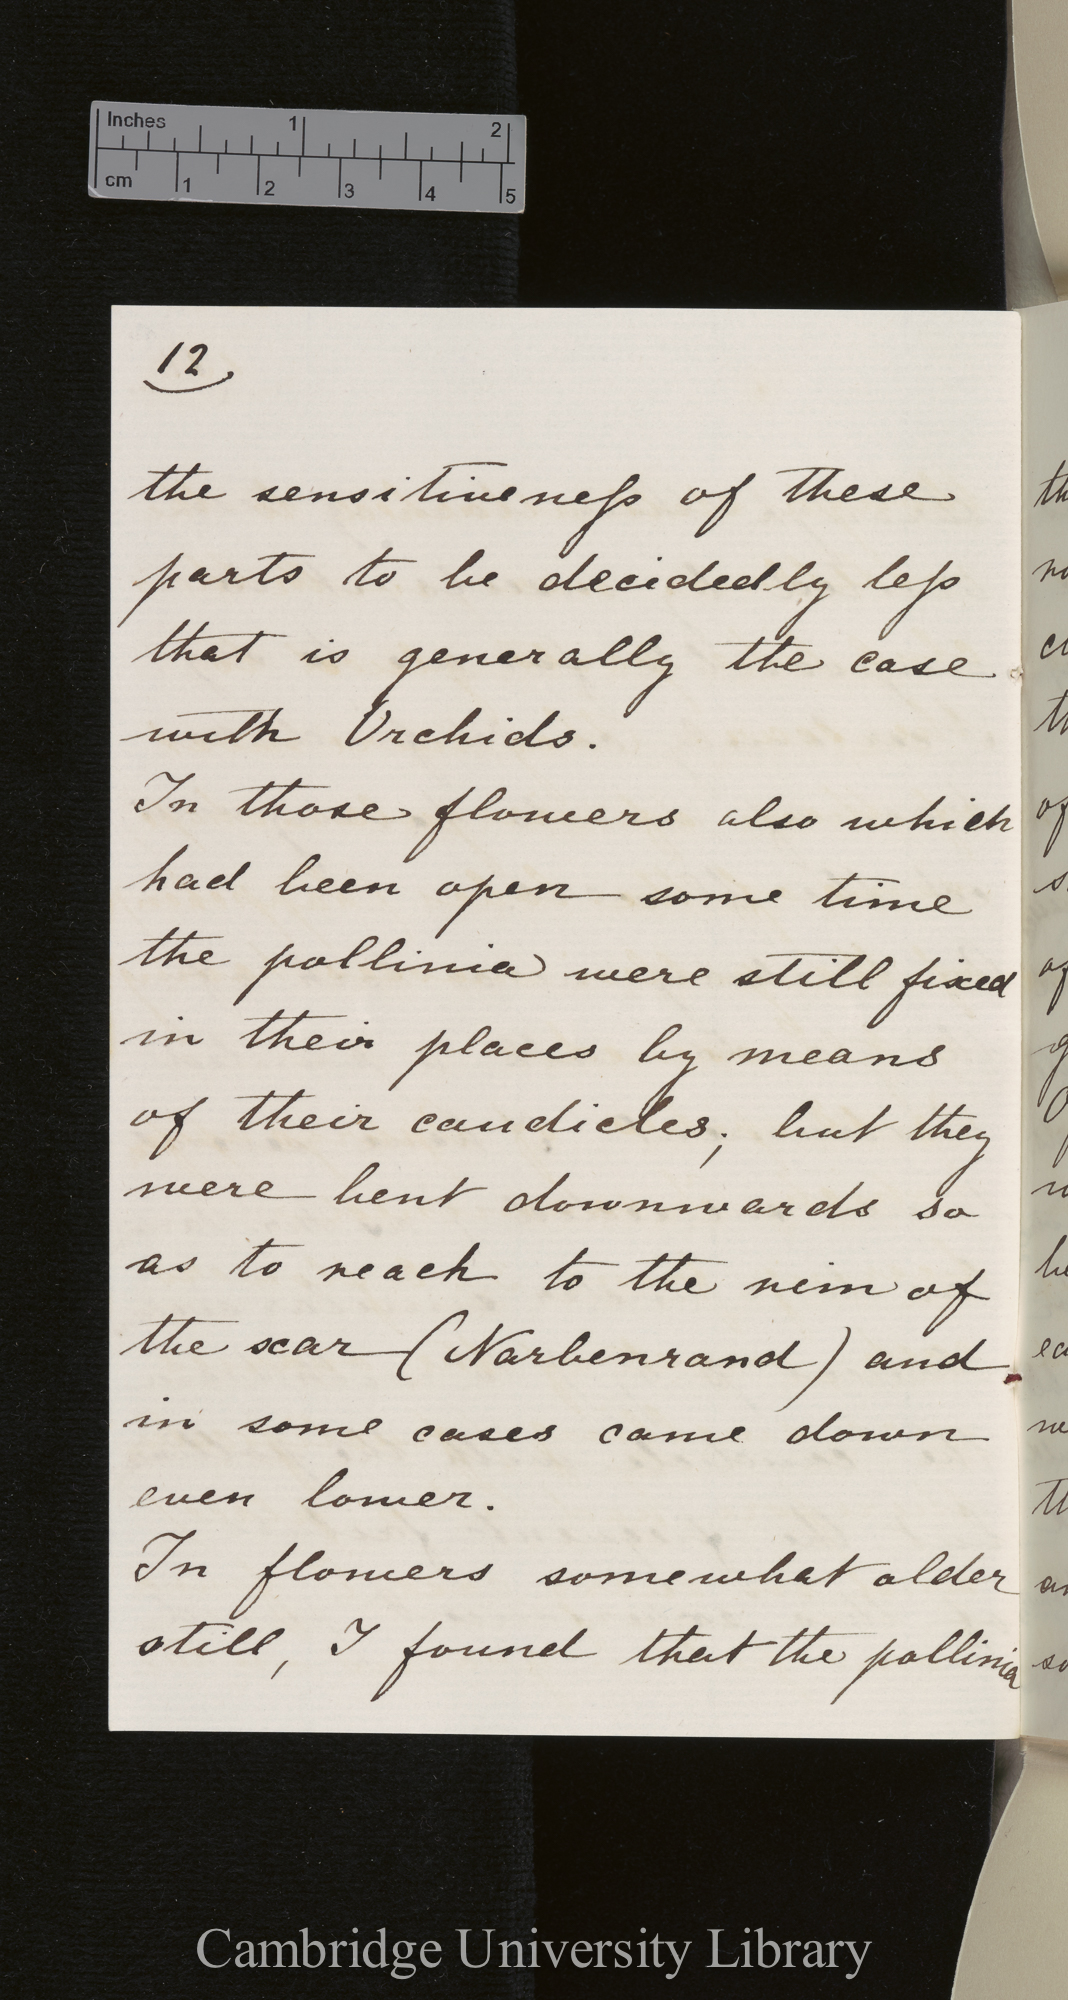 Inches 1 2
cm 1 2 3 4 5
12
the sensitiveneſs of these
parts to be decidedly leſs
that is generally the case
with Orchids.
In those flowers also which
had been open some time
the pollinia were still fixed
in their places by means
of their caudicles; but they
were bent downwards so
as to reach to the rim of
the scar (Narbenrand) and
in some cases came down
even lower.
In flowers somewhat older
still, I found that the pollinia
Cambridge University Library